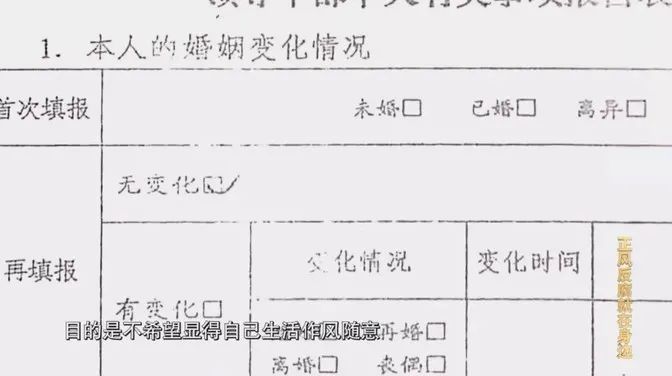 1. 本人的婚姻变化情况
首次填报
未婚□ 已婚□ 离异□
无变化☑
再填报
变化情况
变化时间
有变化□
再婚□
离婚□ 丧偶□
目的是不希望显得自己生活作风随意
正风反腐就在身边